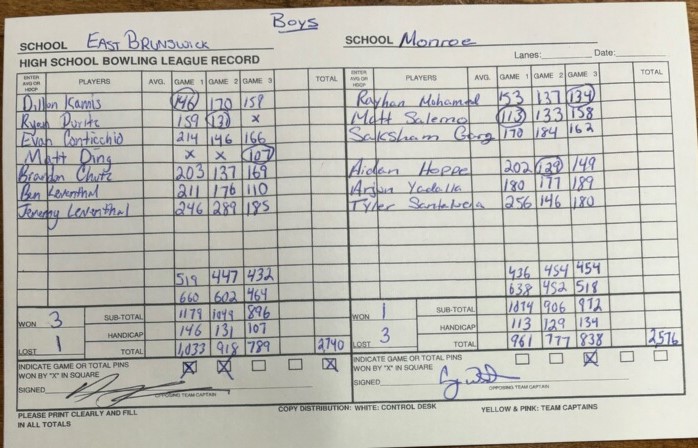 Boys
SCHOOL EAST BRUNSWICK SCHOOL Monroe
HIGH SCHOOL BOWLING LEAGUE RECORD Lanes: Date:
ENTER AVG OR HDCP PLAYERS AVG. GAME 1 GAME 2 GAME 3 TOTAL ENTER AVG OR HDCP PLAYERS AVG. GAME 1 GAME 2 GAME 3 TOTAL
Dillon Kamis 146 170 158 Rayhan Mohamed 153 137 134
Ryan 159 131 x Matt Salerno 113 133 158
Evan Conticchio 214 146 166 Saksham Garg 170 184 162
Matt Ding x x 107
Brandon Chute 203 137 169 Aidan Hoppe 202 129 149
Ben Leventhal 211 176 110 Arjun Yadalla 180 177 189
Jeremy Leventhal 246 289 185 Tyler 256 146 180
519 447 432 436 454 454
660 602 464 638 452 518
WON 3 SUB-TOTAL 1179 1049 896 WON 1 SUB-TOTAL 1074 906 972
HANDICAP 146 131 107 HANDICAP 113 129 134
LOST 1 TOTAL 1,033 918 789 2740 LOST 3 TOTAL 961 777 838 2576
INDICATE GAME OR TOTAL PINS WON BY "X" IN SQUARE X X X INDICATE GAME OR TOTAL PINS WON BY "X" IN SQUARE X
SIGNED OPPOSING TEAM CAPTAIN SIGNED OPPOSING TEAM CAPTAIN
PLEASE PRINT CLEARLY AND FILL IN ALL TOTALS COPY DISTRIBUTION: WHITE: CONTROL DESK YELLOW & PINK: TEAM CAPTAINS